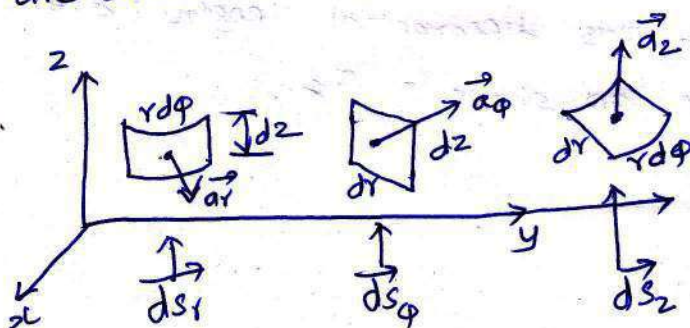 z
rdφ
dz
a⃗r
a⃗φ
dz
dr
a⃗z
dr
rdφ
y
x
d⃗sr
d⃗sφ
d⃗sz